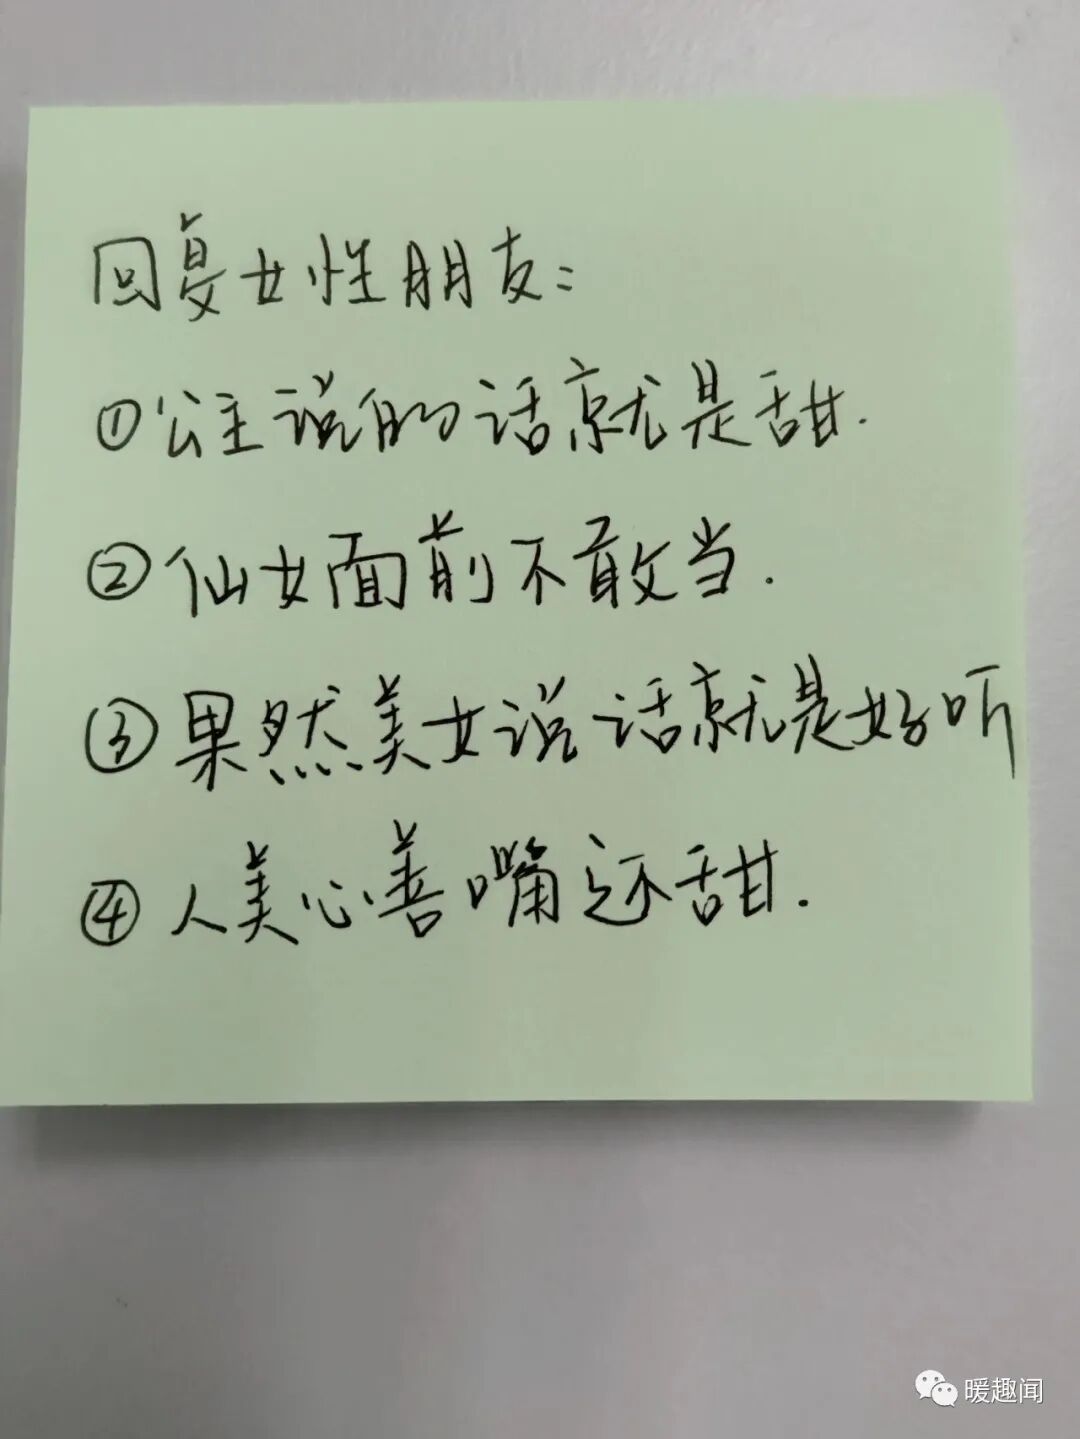 回复女性朋友：
①公主说的话就是甜.
②仙女面前不敢当.
③果然美女说话就是好听
④人美心善嘴还甜.
暖趣闻